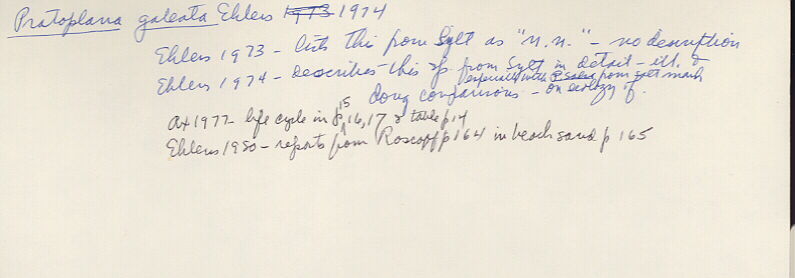 Pratoplana galeata Ehlers 1973 1974
Ehlers 1973 - lists this from Sylt as "n.n." - no description
Ehlers 1974 - describes this sp. from Sylt in detail - ill. &
especially with P. salsa from salt marsh
doing comparisons - on ecology of.
Ax 1977 - life cycle in p 15, 16, 17 & table p 14
Ehlers 1980 - reports from Roscoff p 164 in beach sand p 165